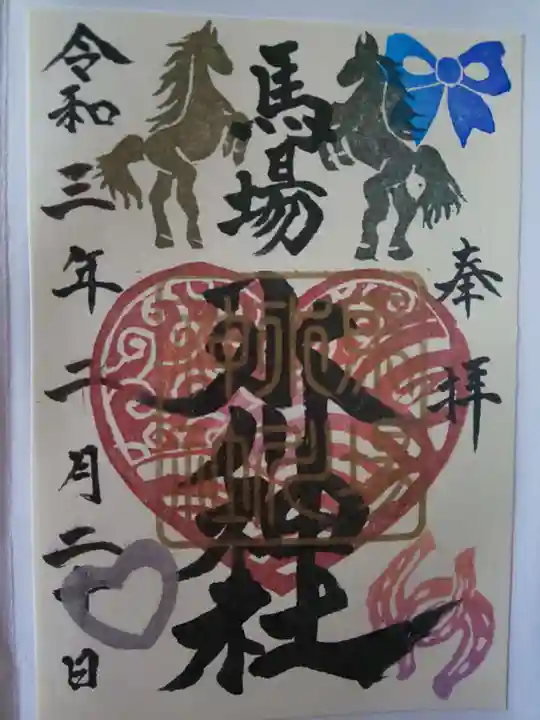 奉拝
馬場
氷川神社
令和三年二月二十日